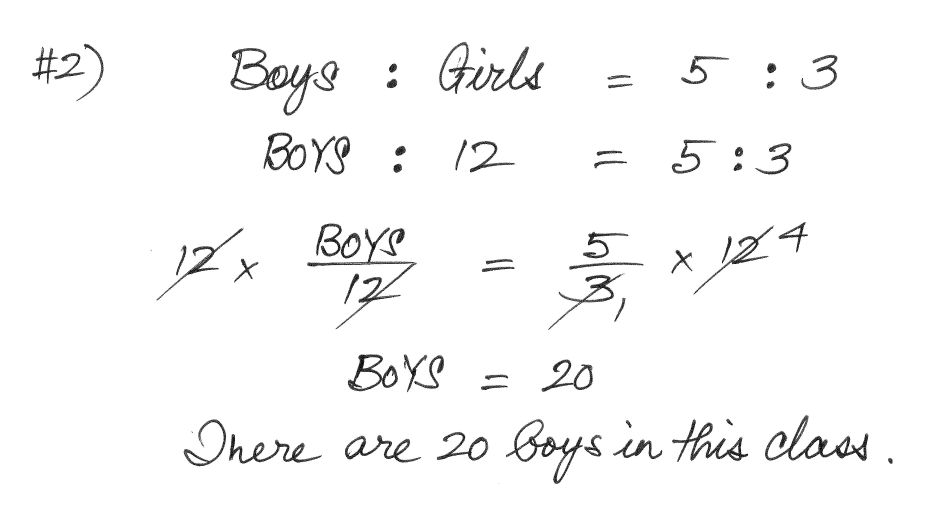 #2) Boys : Girls = 5 : 3
BOYS : 12 = 5 : 3
12 × BOYS/12 = 5/3 1 × 12 4
BOYS = 20
There are 20 boys in this class.